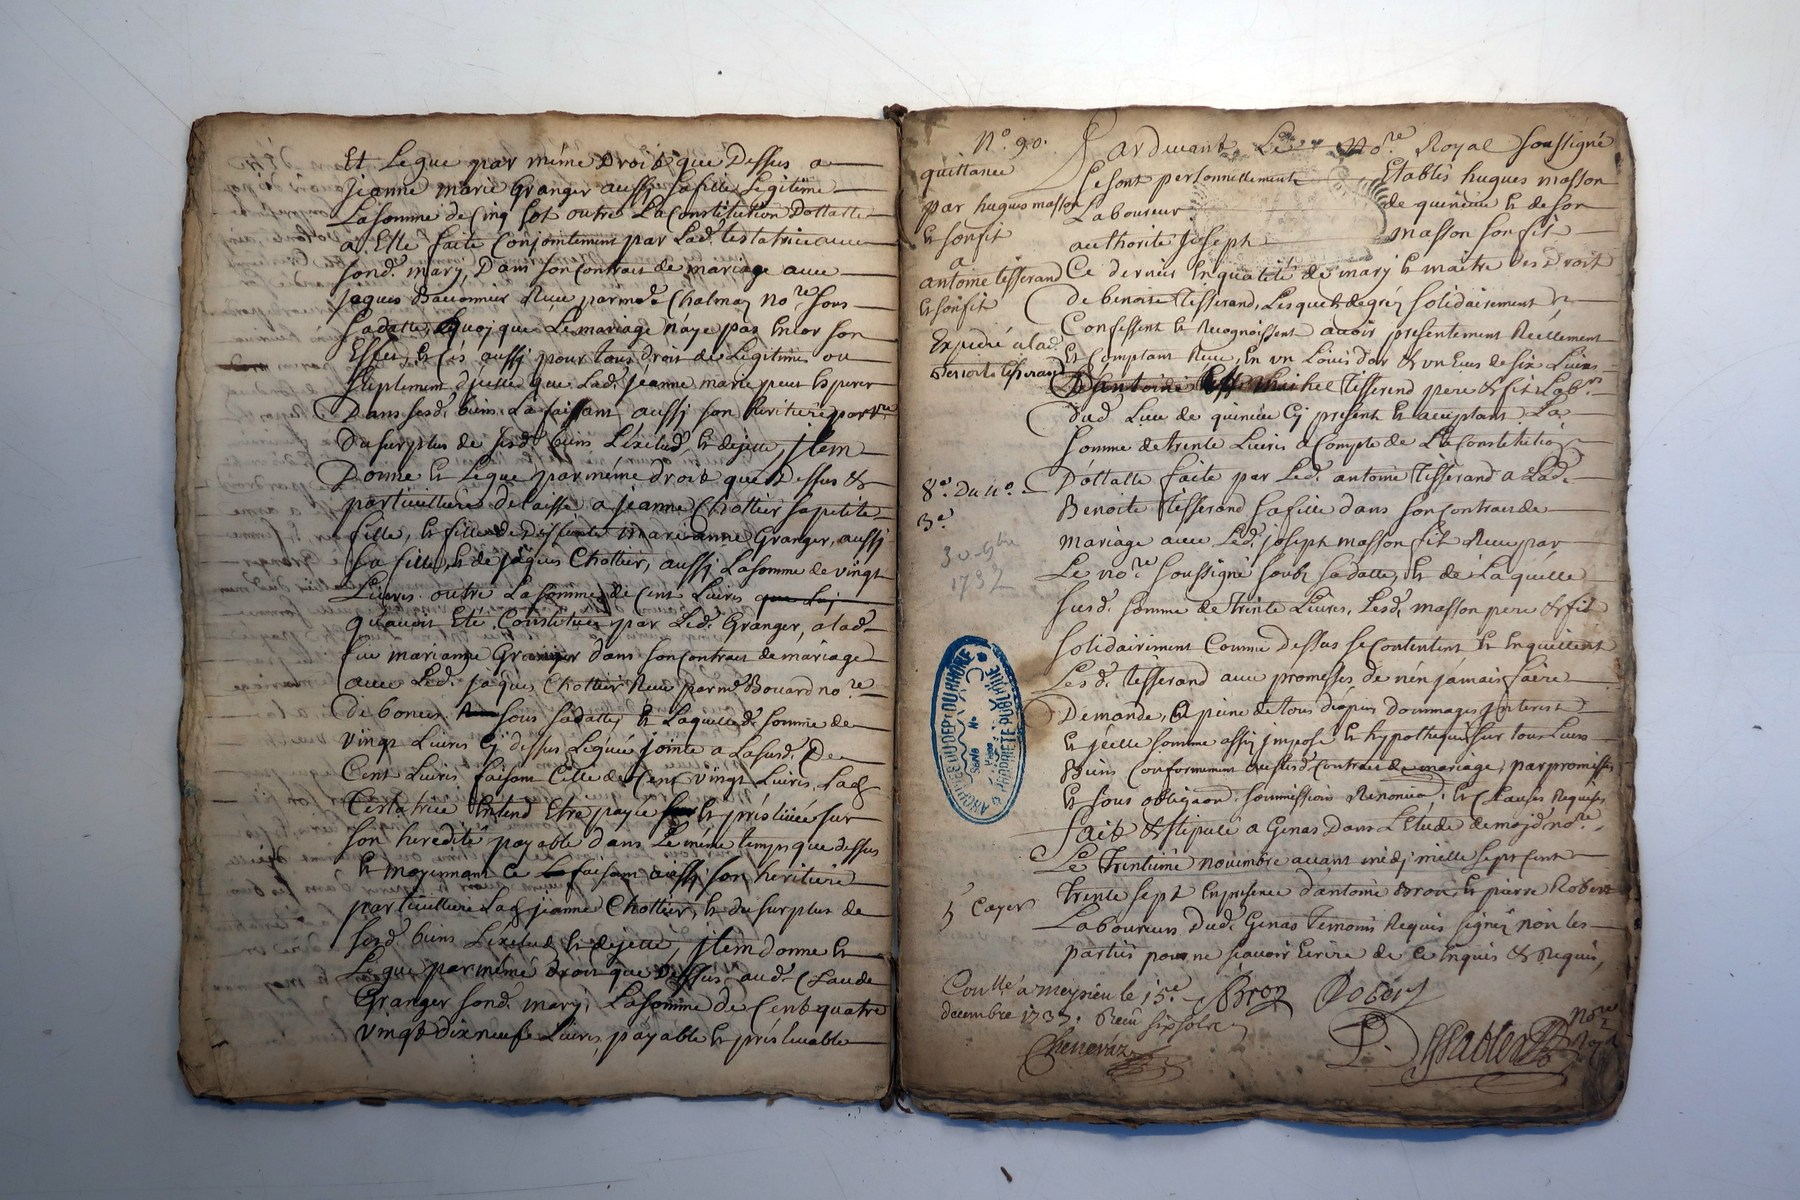 Et Legue par même Droit que Dessus a
jeanne marie Granger aussy sa fille Legitime
La somme de Cinq sol outre La Constitution Dottalle
a Elle faite Conjointement par Lad. testatrice avec
sond. mary, Dans son Contrat de mariage avec
jaques Receu par me Chalmas nore sous
sa datte, quoy que Le mariage n'aye pas Encor son
Effet, Et Ce aussy pour tous droit de Legitime ou
supplement d'jcelle que Lad. jeanne marie peut Esperer
Dans sesd. biens La faisant aussy son heritiere parre
Du surplus de sesd. biens L'exclud Et dejette, jtem
Donne Et Legue par même droit que Dessus &
particulliere delaisse a jeanne Chollier sa petite
fille, Et fille de Deffunte marianne Granger, aussy
sa fille, Et de jaques Chollier, aussy La somme de vingt
Livres outre La somme de Cent Livres
qu'avoit Eté Constituée par Led. Granger, a lad.
feue marianne Granger dans son Contrat de mariage
avec Led. jaques Chollier Receu par me Bouard nore
De sous sa datte, Et Laquelle d. somme de
vingt Livres Cy dessus Leguée jointe a La susd. De
Cent Livres faisant Celle de Cent vingt Livres, Lad.
testatrice Entend Etre payée Et préslevée sur
son heredité payable dans Le même temps que dessus
Et moyennant Ce La faisant aussy son heritiere
particulliere Lad. jeanne Chollier, Et du surplus de
sesd. biens L'exclud Et dejette, jtem donne Et
Legue par même droit que Dessus aud. Claude
Granger sond. mary, La somme de Cent quatre
vingt Dix neuf Livres, payable Et préslevable
No. 90.
quittance
par hugues masson
Et son fit
a
antoine tisserand
Et son fit
Expedié a lad.
benoite tisserand
8e. Du 11e.
3e.
30 9bre
1737
5 Cayer
Pardevant Le Nore. Royal soussigné
se sont personnellement Etablis hugues masson
Laboureur de quineue Et de son
authorité joseph masson son fit
Ce dernier En qualité de mary Et maitre des Droit
De benoite tisserand, Lesquels de gré, solidairement
Confessent Et Recognoissent avoir presentement Reellement
Et Comptant Receu, En un Louis d'or & un Ecus de six Livres
D'antoine Et michel tisserand pere & fit Labrs
dud. Lieu de quineue Cy present Et acceptant La
somme de trente Livres a Compte de La Constitution
Dottalle faite par Led. antoine tisserand a Lad.
Benoite tisserand sa fille dans son Contrat de
mariage avec Led. joseph masson fit Receu par
Le nore soussigné sous sa datte, Et de Laquelle
susd. somme de trente Livres, Lesd. masson pere & fit
solidairement Comme dessus se Contentent Et En quittent
Lesd. tisserand avec promesses de n'en jámais faire
Demande, a peine de tous depens dommages jnterest
Et jcelle somme assy jmpose Et hypothequé sur tous Leurs
Biens Conformement aususd. Contrat de mariage, par promisses
Et sous obligaon. soummission Renonciaon. Et Clauses Requises
fait & stipulé a Genas Dans L'Etude de moyd. nore.
Le trentieme novembre avant midj mille sept Cent
trente sept En presence d'antoine Bron Et pierre Robert
Laboureurs Dud. Genas temoins Requis signez non les
parties pour ne sçavoir Ecrire de Ce Enquis & Requis,
Bron Robert
Conlle a meysieu le 15e.
decembre 1737. Receu six sols
Chenevaz
nore
Roial
ARCHIVES DU DEPT DU RHÔNE
PROPRIETE PUBLIQUE